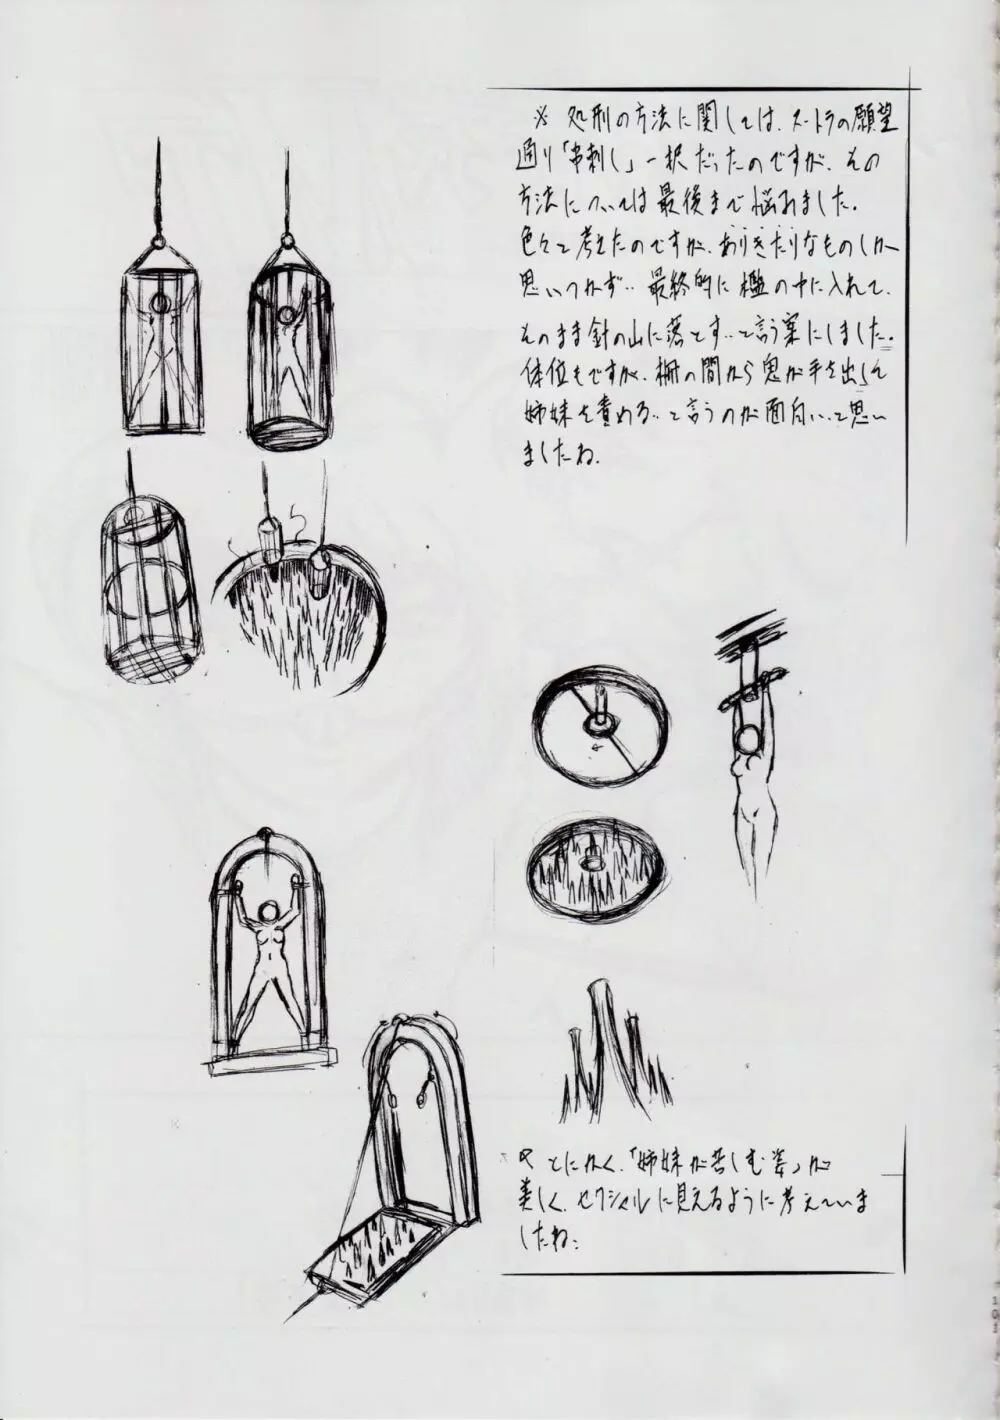 ※ 処刑の方法に関しては、スートラの願望
通り「串刺し」一択だったのですが、その
方法については最後まで悩みました。
色々と考えたのですが、ありきたりなものしか
思いつかず‥最終的に檻の中に入れて、
そのまま針の山に落とす‥と言う案にしました。
体位もですが、柵の間から鬼が手を出して
姉妹を責める‥と言うのが面白いと思い
ましたね。
とにかく、「姉妹が苦しむ姿」が
美しく、セクシャルに見えるように考えていま
したね:
101